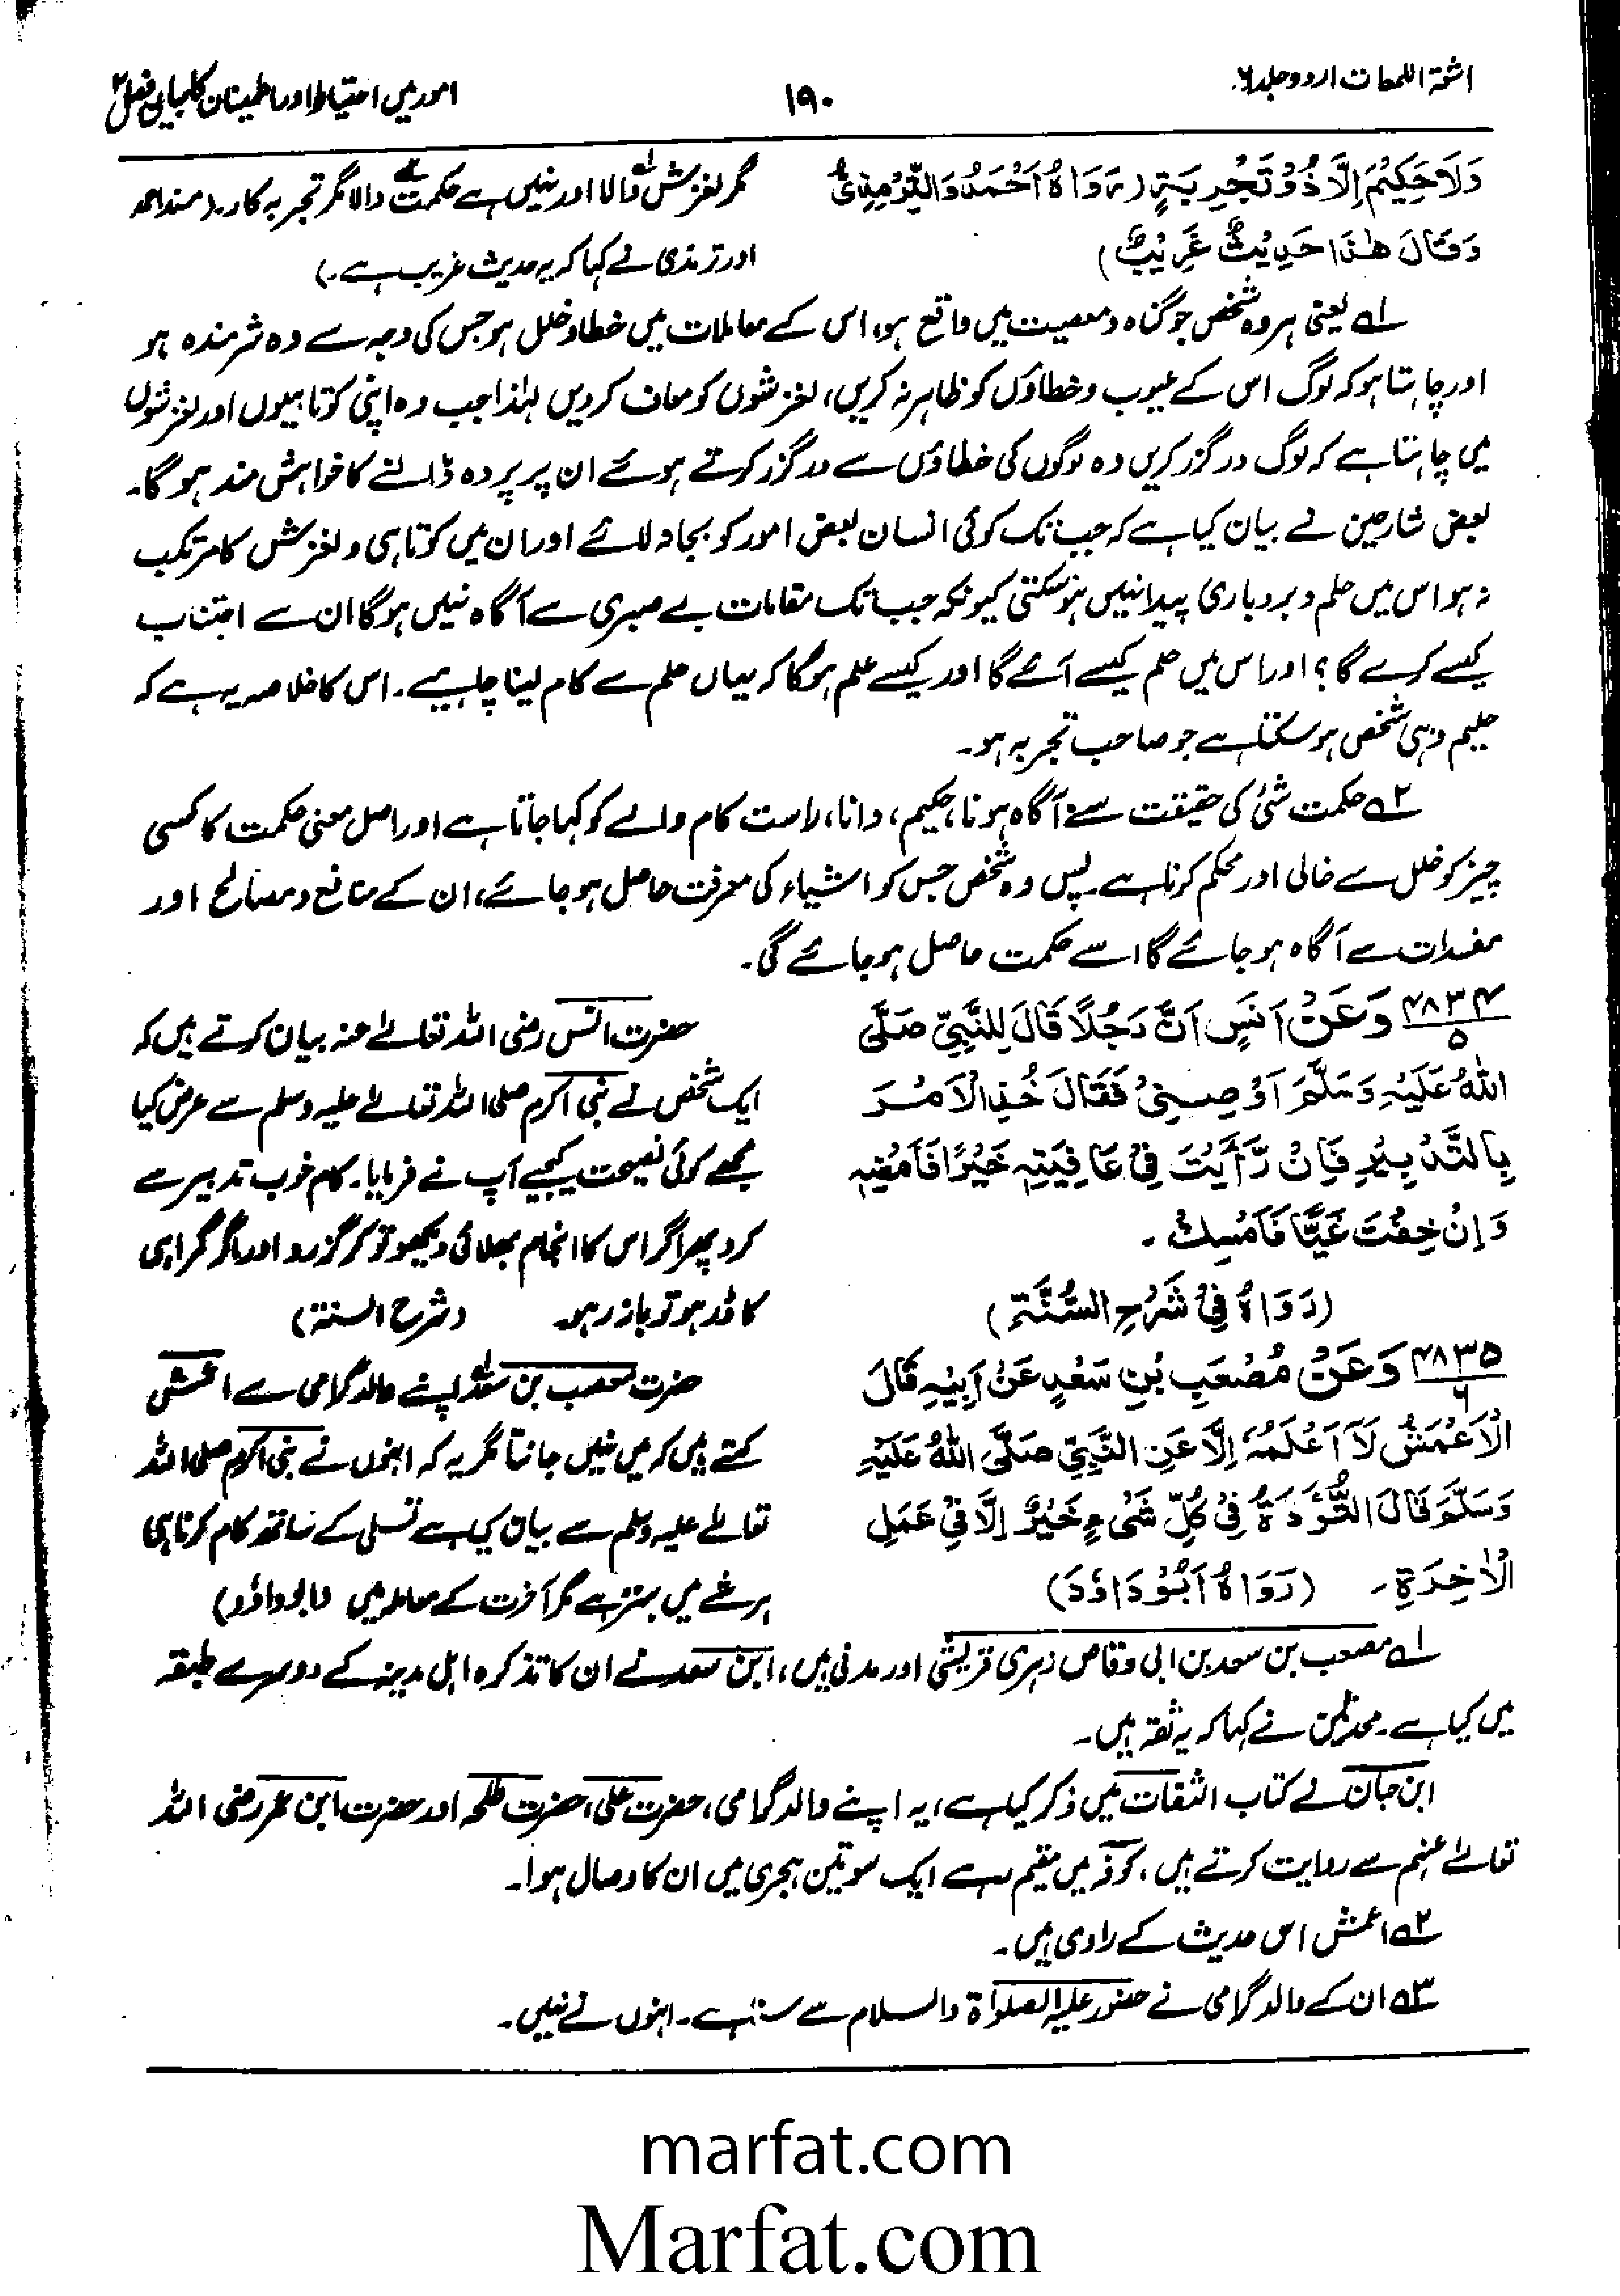 اشعۃ اللمعات اردو جلد ۶
۱۹۰
امور میں احتیاط اور اطمینان کا بیان فصل ۲
وَلَا حَكِيْمَ اِلَّا ذُوْ تَجْرِبَةٍ (رَوَاهُ اَحْمَدُ وَالتِّرْمِذِيُّ
وَقَالَ هٰذَا حَدِيْثٌ غَرِيْبٌ)
مگر لغزش والا۱ اور نہیں ہے حکمت۲ والا مگر تجربہ کار۔ (مسند احمد
اور ترمذی نے کہا کہ یہ حدیث غریب ہے۔)
۱؎ یعنی ہر وہ شخص جو گناہ و معصیت میں واقع ہو، اس کے معاملات میں خطا و خلل ہو جس کی وجہ سے وہ شرمندہ ہو
اور چاہتا ہو کہ لوگ اس کے عیوب و خطاؤں کو ظاہر نہ کریں، لغزشوں کو معاف کر دیں لہٰذا جب وہ اپنی کوتاہیوں اور لغزشوں
میں چاہتا ہے کہ لوگ درگزر کریں وہ لوگوں کی خطاؤں سے درگزر کرتے ہوئے ان پر پردہ ڈالنے کا خواہش مند ہو گا۔
بعض شارحین نے بیان کیا ہے کہ جب تک کوئی انسان بعض امور کو بجا نہ لائے اور ان میں کوتاہی و لغزش کا مرتکب
نہ ہو اس میں حلم و بردباری پیدا نہیں ہو سکتی کیونکہ جب تک مقامات بے صبری سے آگاہ نہیں ہو گا ان سے اجتناب
کیسے کرے گا؟ اور اس میں حلم کیسے آئے گا اور کیسے علم ہو گا کہ یہاں حلم سے کام لینا چاہیے۔ اس کا خلاصہ یہ ہے کہ
حلیم وہی شخص ہو سکتا ہے جو صاحب تجربہ ہو۔
۲؎ حکمت شئ کی حقیقت سے آگاہ ہونا، حکیم، دانا، راست کام والے کو کہا جاتا ہے اور اصل معنی حکمت کا کسی
چیز کو خلل سے خالی اور محکم کرنا ہے۔ پس وہ شخص جس کو اشیاء کی معرفت حاصل ہو جائے، ان کے منافع و مصالح اور
مفسدات سے آگاہ ہو جائے گا اسے حکمت حاصل ہو جائے گی۔
۴۸۳۴/۵ وَعَنْ اَنَسٍ اَنَّ رَجُلًا قَالَ لِلنَّبِيِّ صَلَّى
اللّٰهُ عَلَيْهِ وَسَلَّمَ اَوْصِنِيْ فَقَالَ خُذِ الْاَمْرَ
بِالتَّدْبِيْرِ فَاِنْ رَّاَيْتَ فِيْ عَافِيَتِهٖ خَيْرًا فَاَمْضِهٖ
وَاِنْ خِفْتَ غَيًّا فَاَمْسِكْ۔
(رَوَاهُ فِيْ شَرْحِ السُّنَّةِ)
حضرت انس رضی اللہ تعالےٰ عنہ بیان کرتے ہیں کہ
ایک شخص نے نبی اکرم صلی اللہ تعالےٰ علیہ وسلم سے عرض کیا
مجھے کوئی نصیحت کیجیے آپ نے فرمایا۔ کام خوب تدبیر سے
کرو پھر اگر اس کا انجام بھلائی دیکھو تو کر گزرو اور اگر گمراہی
کا ڈر ہو تو باز رہو۔ (شرح السنۃ)
۴۸۳۵/۶ وَعَنْ مُصْعَبِ بْنِ سَعْدٍ عَنْ اَبِيْهِ قَالَ
الْاَعْمَشُ لَآ اَعْلَمُهٗ اِلَّا عَنِ النَّبِيِّ صَلَّى اللّٰهُ عَلَيْهِ
وَسَلَّمَ قَالَ التُّؤَدَةُ فِيْ كُلِّ شَيْءٍ خَيْرٌ اِلَّا فِيْ عَمَلِ
الْاٰخِرَةِ۔ (رَوَاهُ اَبُوْ دَاوٗدَ)
حضرت مصعب بن سعد۱ اپنے والد گرامی سے اعمش
کہتے ہیں کہ میں نہیں جانتا مگر یہ کہ انہوں نے نبی اکرم صلی اللہ
تعالےٰ علیہ وسلم سے بیان کیا ہے تسلی کے ساتھ کام کرنا ہی
ہر شے میں بہتر ہے مگر آخرت کے معاملہ میں (ابو داؤد)
۱؎ مصعب بن سعد بن ابی وقاص زہری قریشی اور مدنی ہیں، ابن سعد نے ان کا تذکرہ اہل مدینہ کے دوسرے طبقہ
میں کیا ہے۔ محدثین نے کہا کہ یہ ثقہ ہیں۔
ابن حبان نے کتاب الثقات میں ذکر کیا ہے، یہ اپنے والد گرامی، حضرت علی، حضرت طلحہ اور حضرت ابن عمر رضی اللہ
تعالےٰ عنہم سے روایت کرتے ہیں، کوفہ میں مقیم رہے ایک سو تین ہجری میں ان کا وصال ہوا۔
۲؎ اعمش اس حدیث کے راوی ہیں۔
۳؎ ان کے والد گرامی نے حضور علیہ الصلوٰۃ والسلام سے سنا ہے۔ انہوں نے نہیں۔
marfat.com
Marfat.com